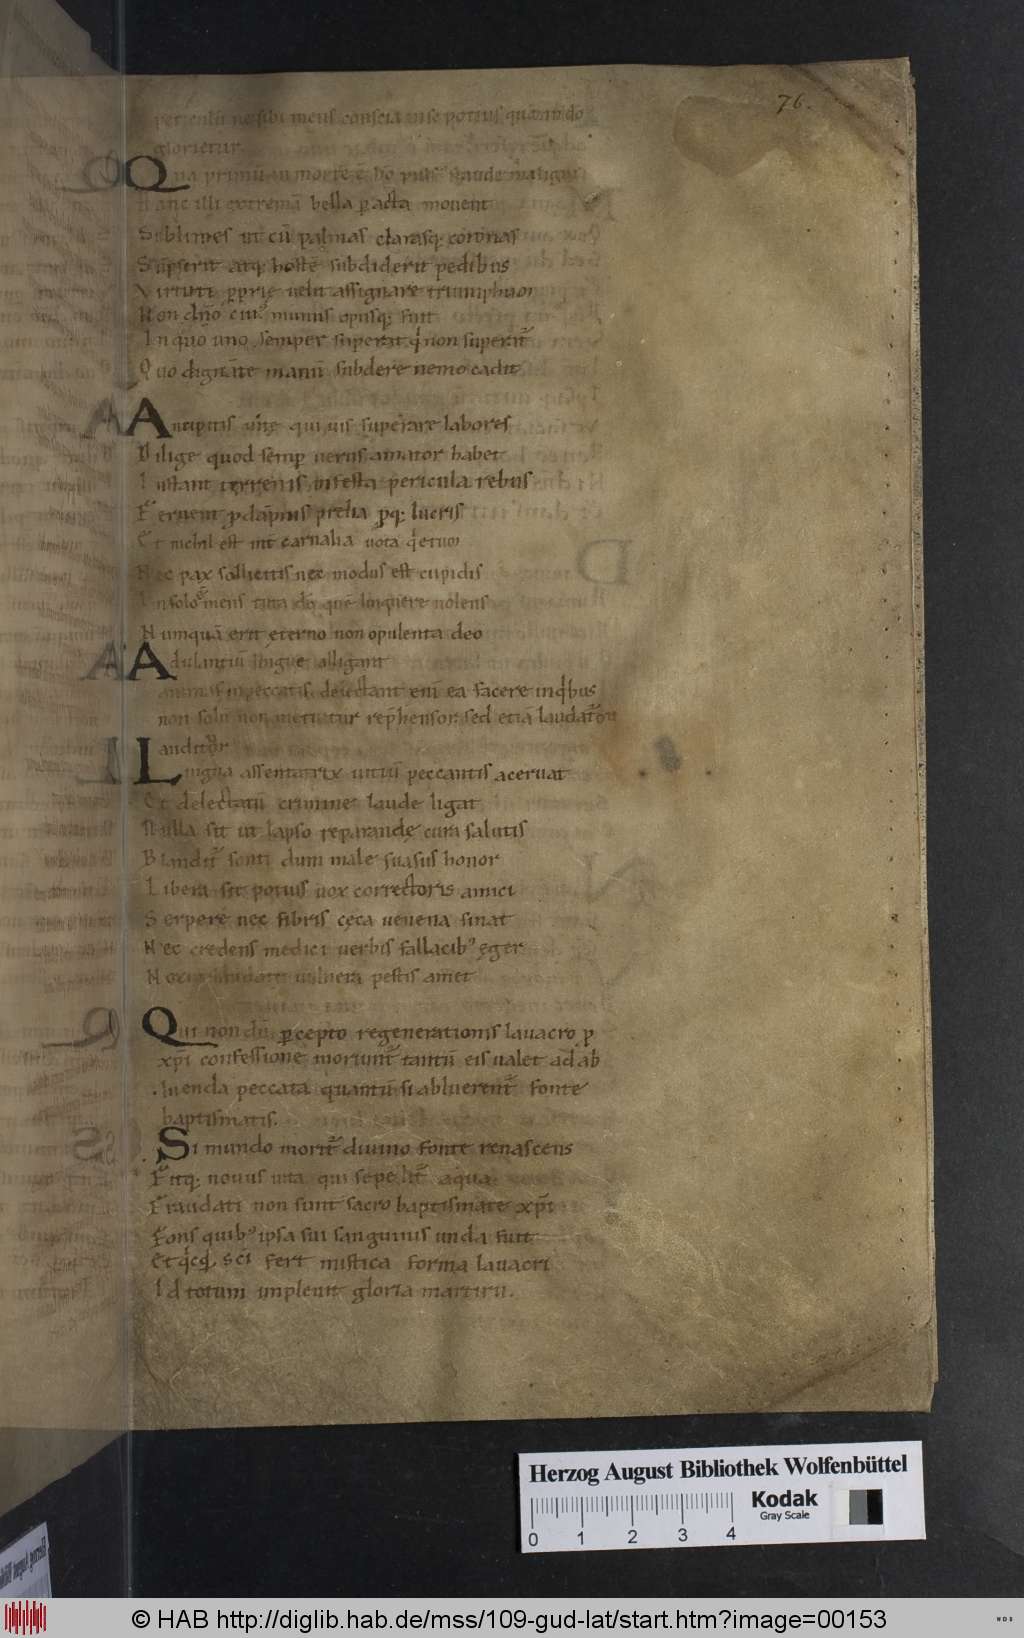 76.
glorietur
Qua primū in morte ē
Hanc illi extremā bella pacta movent
Sublimes ut cū palmas clarasq; coronas
Sūpserit atq; hostē subdiderit pedibus
Virtuti pprię velit assignare triumphū
Non dn̄o cui9 munus opusq; fuit
In quo uno semper superat qi non superat̄
Quo dignāte manū subdere nemo cadit
Ancipitis vitę qui vis superare labores
Dilige quod semp verus amator habet
Instant terrenis infesta pericula rebus
Fervent p dāpnis prelia pq; lucris
Et nichil est int carnalia vota qietum
Nec pax sollicitis nec modus est cupidis
In solo ē mens tuta dō quē linquere nolens
Numquā erit eterno non opulenta deo
Adulantiū linguę alligant
animas in peccatis. delectant enī ea facere in qibus
non solū non metuatur reprehensor; sed etiā laudator
Lauditor
Lingua assentatrix vitiū peccantis acervat
Et delectatū crimine laude ligat
Nulla sit ut lapso reparandę cura salutis
Blandit̄ sonti dum male suasus honor
Libera sit potius vox correctoris amici
Serpere nec fibris cęca venena sinat
Nec credens medici verbis fallacib9 ęger
vulnera pestis amet
Qui non dū pcepto regenerationis lavacro p
xp̄i confessione moriunt̄ tantū eis valet ad ab
luenda peccata quantū si abluerent̄ fonte
baptismatis.
Si mundo morit̄ divino fonte renascens
Fitq; novus vita qui sepelit̄ aqua
Fraudati non sunt sacro baptismate xp̄i
Fons quib9 ipsa sui sanguinis unda fuit
Et qicqid sc̄i fert mistica forma lavacri
Id totum implevit gloria martirii.
Herzog August Bibliothek Wolfenbüttel
0 1 2 3 4
Kodak
Gray Scale
© HAB http://diglib.hab.de/mss/109-gud-lat/start.htm?image=00153